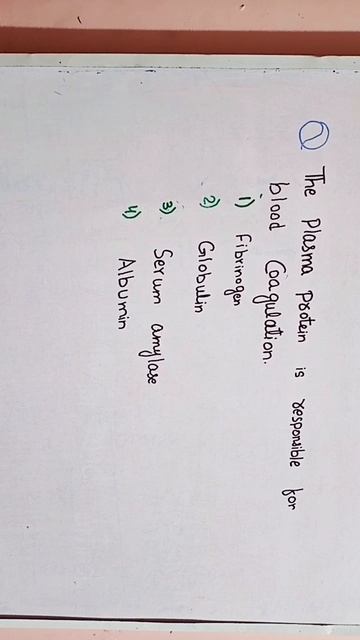 Q The Plasma Protein is responsible for
blood Coagulation.
1) Fibrinogen
2) Globulin
3) Serum amylase
4) Albumin